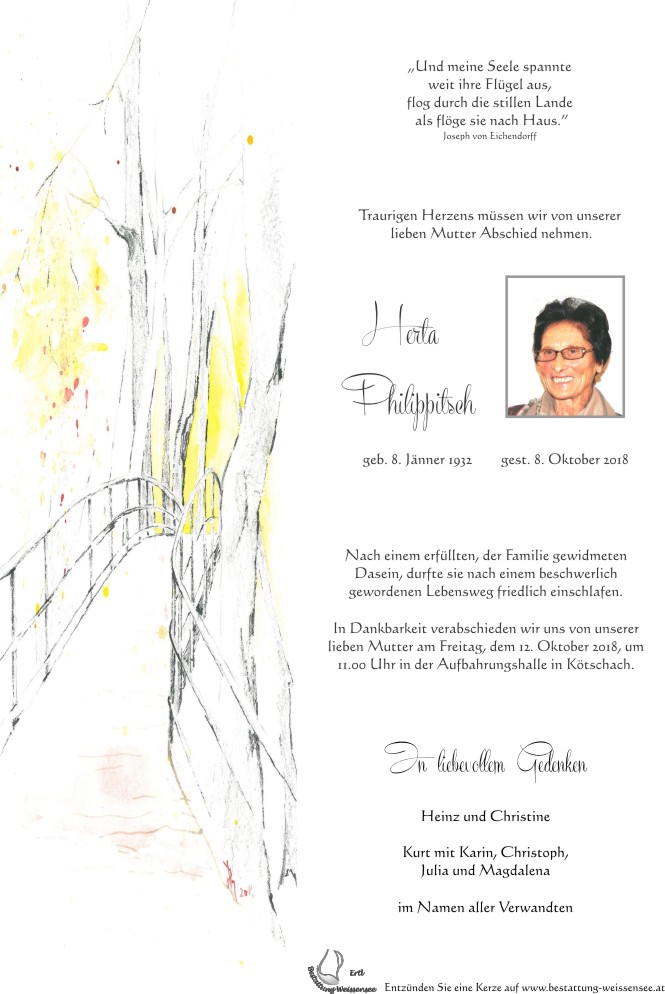 „Und meine Seele spannte
weit ihre Flügel aus,
flog durch die stillen Lande
als flöge sie nach Haus.”
Joseph von Eichendorff
Traurigen Herzens müssen wir von unserer
lieben Mutter Abschied nehmen.
Herta
Philippitsch
geb. 8. Jänner 1932 gest. 8. Oktober 2018
Nach einem erfüllten, der Familie gewidmeten
Dasein, durfte sie nach einem beschwerlich
gewordenen Lebensweg friedlich einschlafen.
In Dankbarkeit verabschieden wir uns von unserer
lieben Mutter am Freitag, dem 12. Oktober 2018, um
11.00 Uhr in der Aufbahrungshalle in Kötschach.
In liebevollem Gedenken
Heinz und Christine
Kurt mit Karin, Christoph,
Julia und Magdalena
im Namen aller Verwandten
Ertl
Bestattung-Weissensee
Entzünden Sie eine Kerze auf www.bestattung-weissensee.at